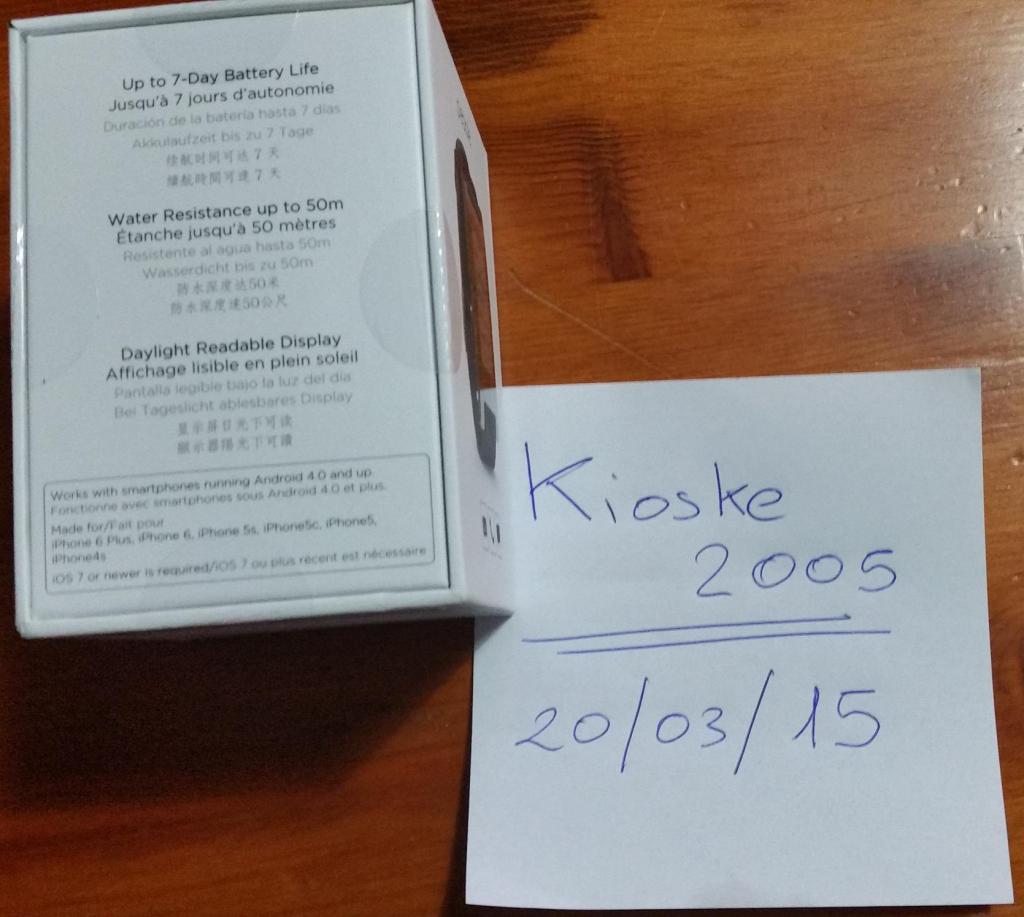 Up to 7-Day Battery Life
Jusqu'à 7 jours d'autonomie
Duración de la batería hasta 7 días
Akkulaufzeit bis zu 7 Tage
续航时间可达 7 天
續航時間可達 7 天
Water Resistance up to 50m
Étanche jusqu'à 50 mètres
Resistente al agua hasta 50m
Wasserdicht bis zu 50m
防水深度达50米
防水深度達50公尺
Daylight Readable Display
Affichage lisible en plein soleil
Pantalla legible bajo la luz del día
Bei Tageslicht ablesbares Display
显示屏日光下可读
顯示器陽光下可讀
Works with smartphones running Android 4.0 and up.
Fonctionne avec smartphones sous Android 4.0 et plus.
Made for/Fait pour
iPhone 6 Plus, iPhone 6, iPhone 5s, iPhone5c, iPhone5,
iPhone4s
iOS 7 or newer is required/iOS 7 ou plus récent est nécessaire
Kioske
2005
20/03/15